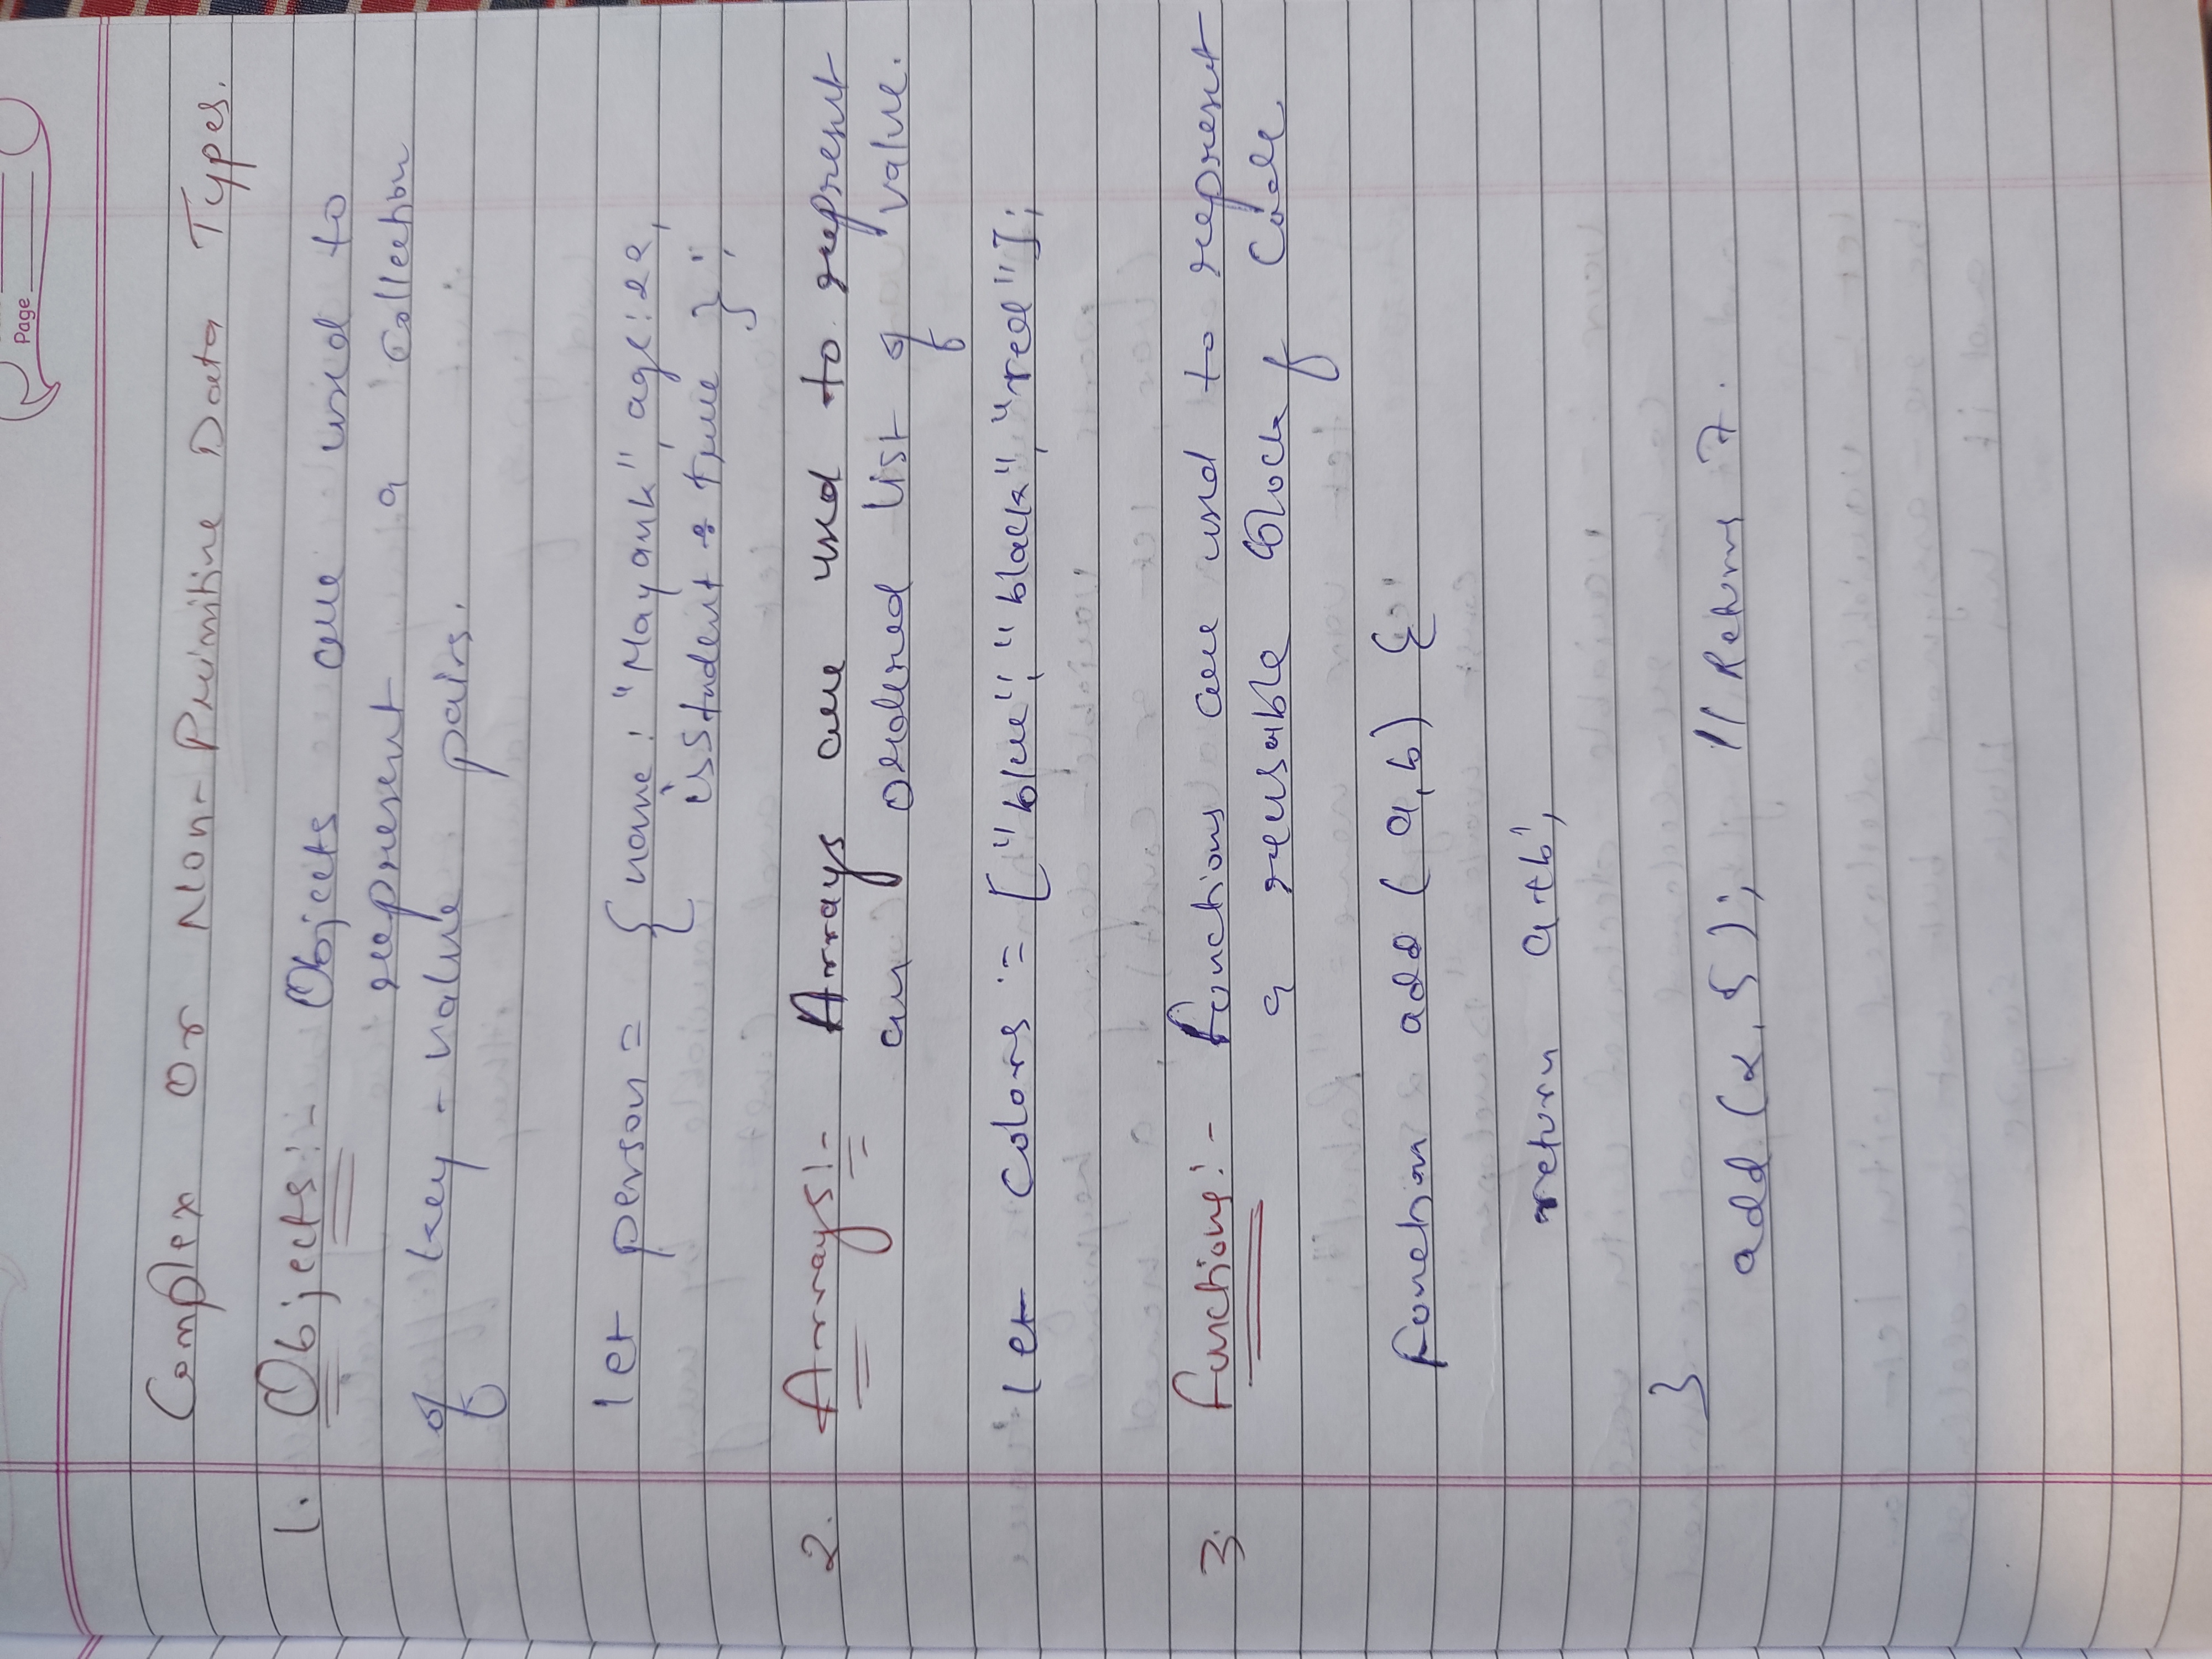 Page
Complex Or Non-Primitive Data Types.
1. Objects:- Objects are used to
represent a Collection
of key-value pairs.
let person = { name: "Mayank", age: 22,
isStudent : true };
2. Arrays:- Arrays are used to represent
an ordered list of value.
let colors = ["blue", "black", "red"];
3. functions:- functions are used to represent
a reusable block of Code
function add (a,b) {
return a+b;
}
add (2, 5); // Returns 7.